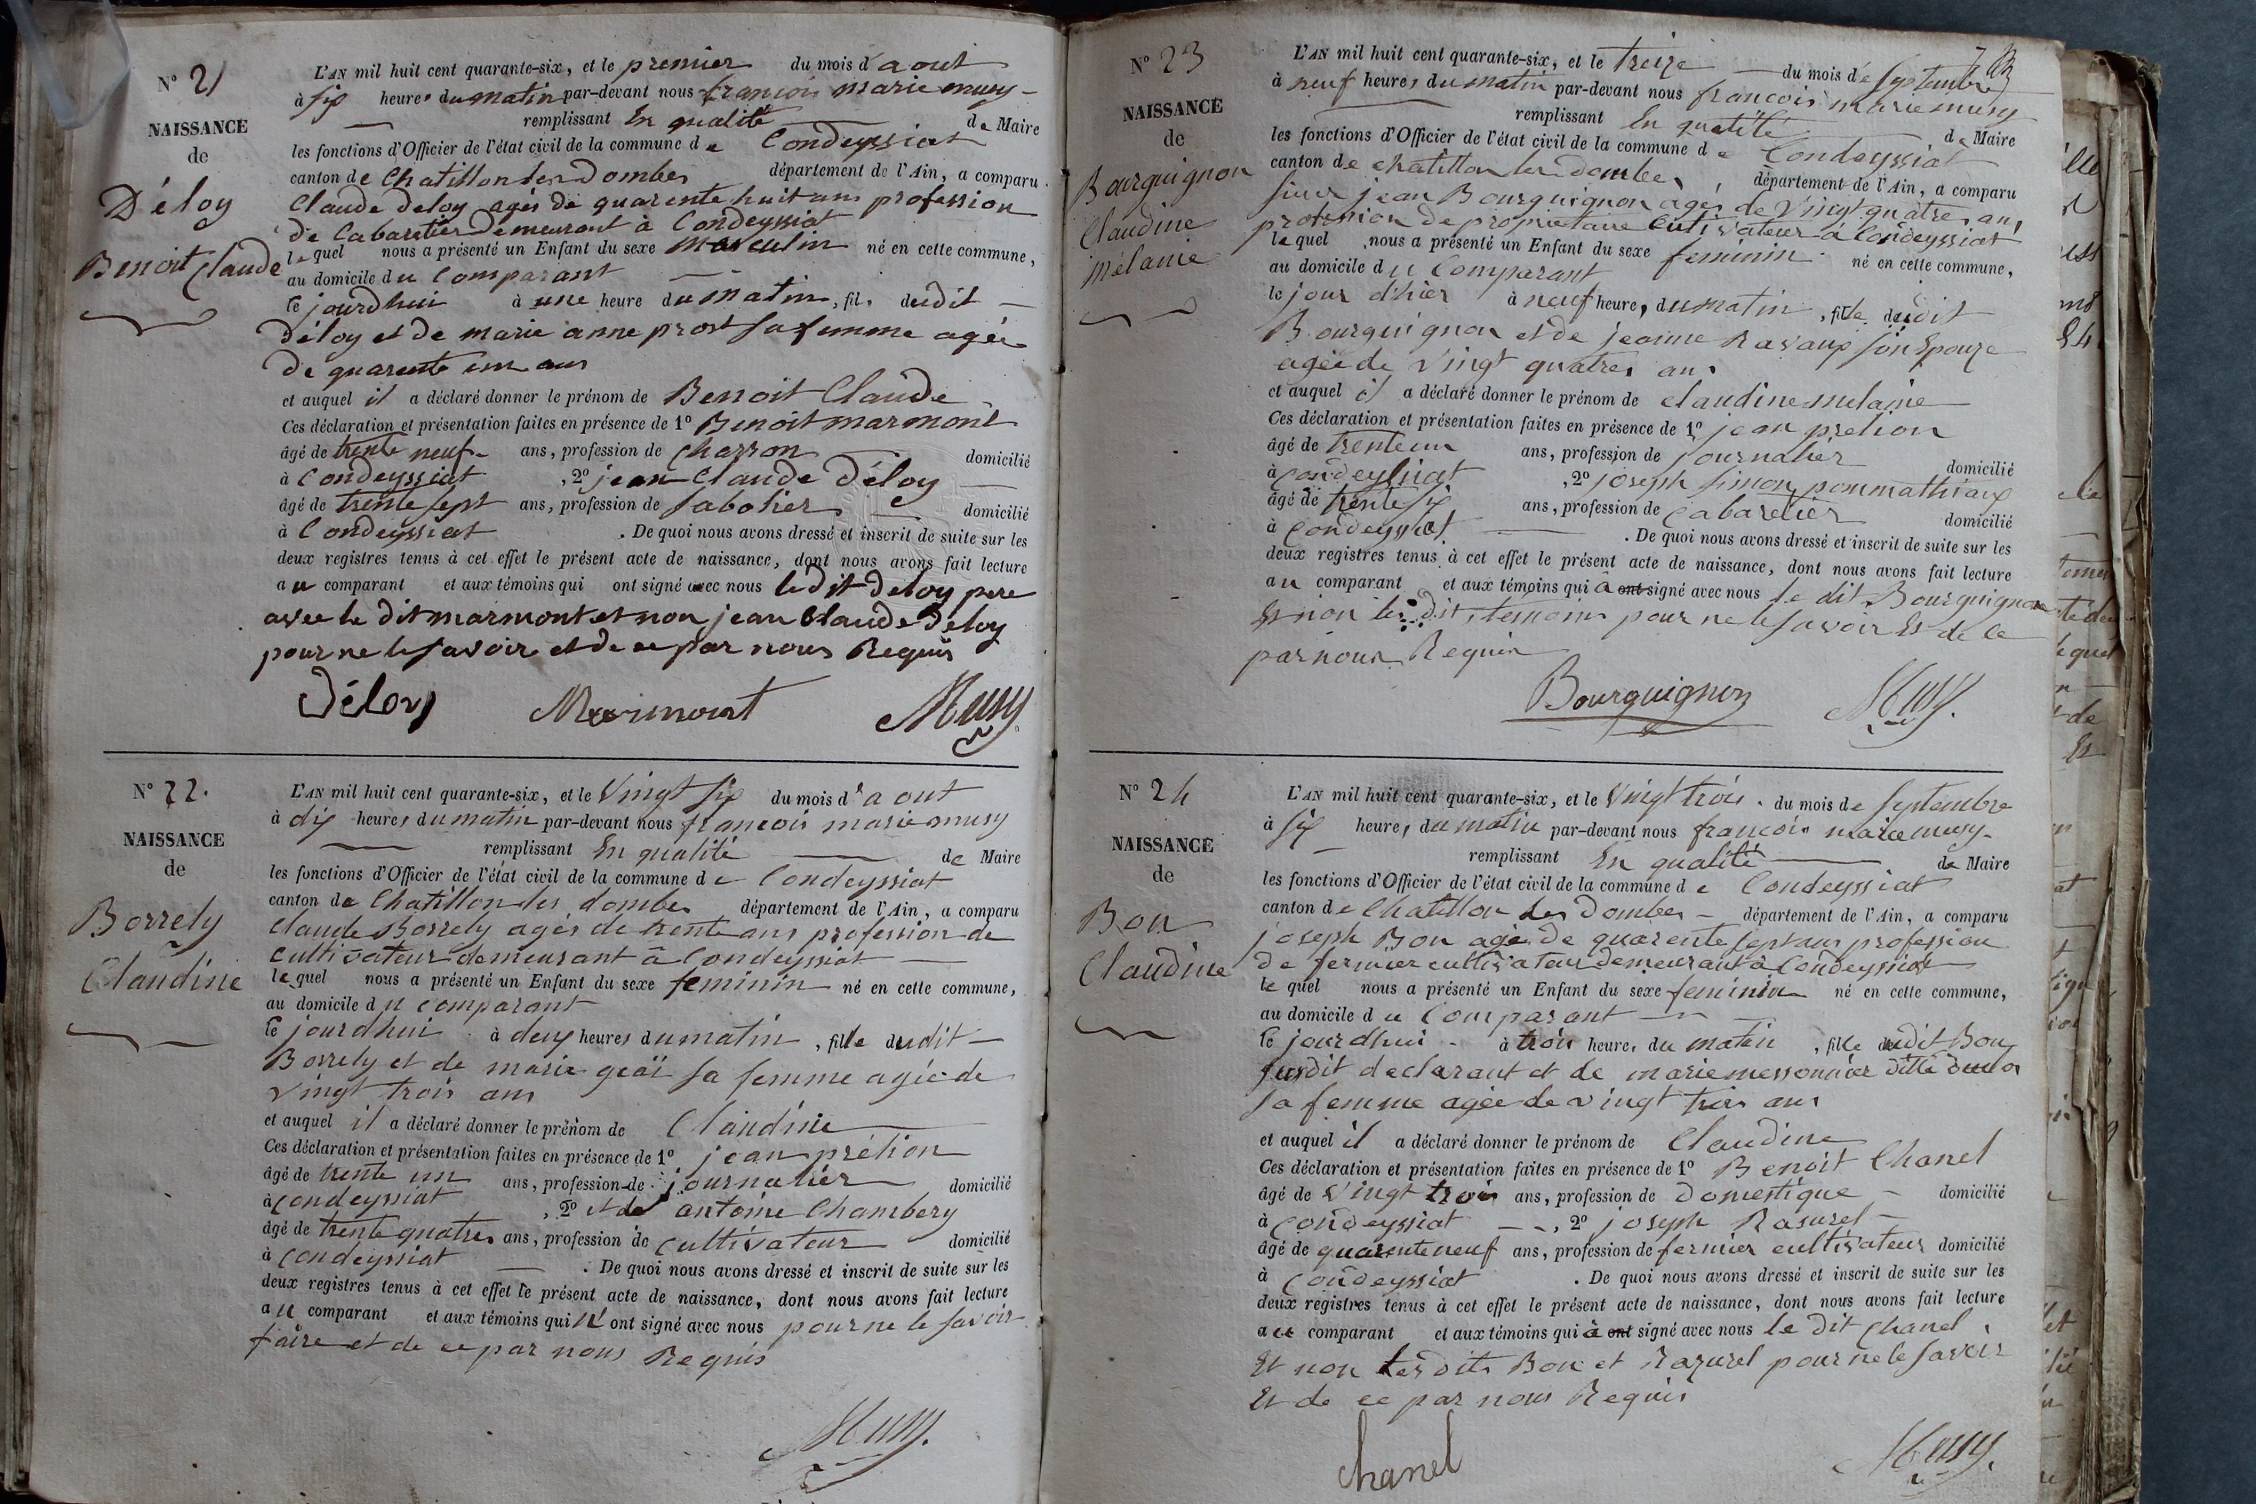 N° 21
NAISSANCE
de
Déloy
Benoit Claude
L'AN mil huit cent quarante-six, et le premier du mois d'aout
à six heures du matin par-devant nous francois marie musy
remplissant En qualité de Maire
les fonctions d'Officier de l'état civil de la commune de Condeyssiat
canton de Chatillon les Dombes département de l'Ain, a comparu
Claude deloy agés de quarente huit ans profession
De Cabaretier Demeurant à Condeyssiat
lequel nous a présenté un Enfant du sexe masculin né en cette commune,
au domicile du Comparant
le jourdhui à une heure du matin, fils dudit
Déloy et de marie anne prost sa femme agée
De quarente un ans
et auquel il a déclaré donner le prénom de Benoit Claude
Ces déclaration et présentation faites en présence de 1° Benoit marmont
âgé de trente neuf ans, profession de Charron domicilié
à Condeyssiat , 2° jean Claude Déloy
âgé de trente sept ans, profession de sabotier domicilié
à Condeyssiat . De quoi nous avons dressé et inscrit de suite sur les
deux registres tenus à cet effet le présent acte de naissance, dont nous avons fait lecture
au comparant et aux témoins qui ont signé avec nous le dit deloy pere
avec le dit marmont et non jean Claude Déloy
pour ne le savoir et de ce par nous Requis
Déloy Marmont Musy
N° 22.
NAISSANCE
de
Borrely
Claudine
L'AN mil huit cent quarante-six, et le Vingt six du mois d'aout
à dix heures du matin par-devant nous francois marie musy
remplissant En qualité de Maire
les fonctions d'Officier de l'état civil de la commune de Condeyssiat
canton de Chatillon les dombes département de l'Ain, a comparu
Claude Borrely agés de trente ans profession de
cultivateur demeurant à Condeyssiat
lequel nous a présenté un Enfant du sexe feminin né en cette commune,
au domicile du comparant
le jourdhui à deux heures du matin, fille dudit
Borrely et de marie geäï sa femme agée de
vingt trois ans
et auquel il a déclaré donner le prénom de Claudine
Ces déclaration et présentation faites en présence de 1° jean prétion
âgé de trente un ans, profession de journalier domicilié
à condeyssiat , 2° et de antoine Chambery
âgé de trente quatres ans, profession de cultivateur domicilié
à condeyssiat . De quoi nous avons dressé et inscrit de suite sur les
deux registres tenus à cet effet le présent acte de naissance, dont nous avons fait lecture
au comparant et aux témoins qui n'ont signé avec nous pour ne le savoir
faire et de ce par nous Requis
Musy.
N° 23
NAISSANCE
de
Bourguignon
Claudine
mélanie
L'AN mil huit cent quarante-six, et le treize du mois de Septembre
à neuf heures du matin par-devant nous francois marie musy
remplissant En qualité de Maire
les fonctions d'Officier de l'état civil de la commune de Condeyssiat
canton de chatillon les dombes département de l'Ain, a comparu
sieur jean Bourguignon agés de Vingt quatres ans
profession de proprietaire Cultivateur à Condeyssiat
lequel nous a présenté un Enfant du sexe feminin né en cette commune,
au domicile du Comparant
le jour d'hier à neuf heures, du matin, fille dudit
Bourguignon et de jeanne Ravaux son Epouze
agée de Vingt quatres ans
et auquel il a déclaré donner le prénom de claudine melanie
Ces déclaration et présentation faites en présence de 1° jean pretion
âgé de trente un ans, profession de journalier domicilié
à condeyssiat , 2° joseph simon pommathiaux
âgé de trente six ans, profession de Cabaretier domicilié
à Condeyssiat . De quoi nous avons dressé et inscrit de suite sur les
deux registres tenus à cet effet le présent acte de naissance, dont nous avons fait lecture
au comparant et aux témoins qui a ont signé avec nous le dit Bourguignon
Et non les dit temoins pour ne le savoir Et de ce
par nous Requis
Bourguignon Musy.
N° 24
NAISSANCE
de
Bon
Claudine
L'AN mil huit cent quarante-six, et le Vingt trois du mois de Septembre
à six heures, du matin par-devant nous francois marie musy
remplissant En qualité de Maire
les fonctions d'Officier de l'état civil de la commune de Condeyssiat
canton de Chatillon les Dombes département de l'Ain, a comparu
joseph Bon agé de quarente sept ans profession
De fermier cultivateur demeurant à Condeyssiat
lequel nous a présenté un Enfant du sexe feminin né en cette commune,
au domicile du Comparant
le jourdhui à trois heures, du matin, fille dudit Bon
susdit declarant et de marie messonnier ditte
sa femme agée de vingt trois ans
et auquel il a déclaré donner le prénom de Claudine
Ces déclaration et présentation faites en présence de 1° Benoit Chanel
âgé de Vingt trois ans, profession de Domestique domicilié
à Condeyssiat , 2° joseph Rasurel
âgé de quarente neuf ans, profession de fermier cultivateur domicilié
à Condeyssiat . De quoi nous avons dressé et inscrit de suite sur les
deux registres tenus à cet effet le présent acte de naissance, dont nous avons fait lecture
au comparant et aux témoins qui a ont signé avec nous le dit Chanel
Et non les dits Bon et Razurel pour ne le savoir
Et de ce par nous Requis
Chanel Musy.